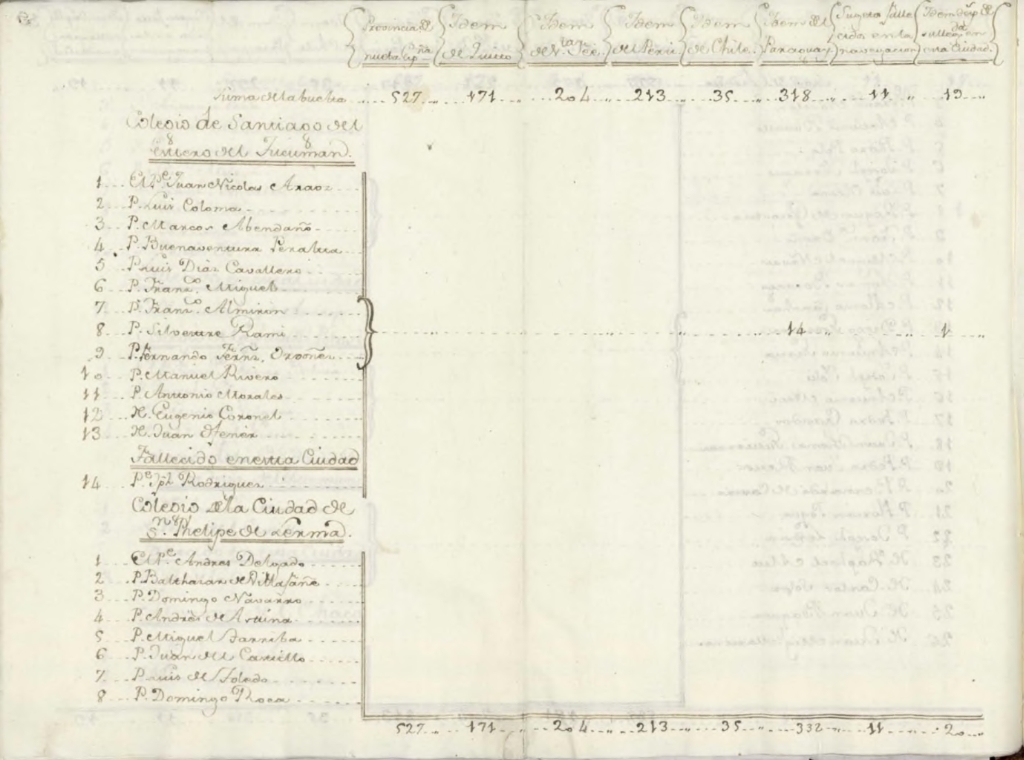 Provincia de Idem Idem Idem Idem Idem del Sugetos falle Idem
nueva Esp.ña de Quito de N.ª de Perú de Chile Paraguay cidos en la en
navegacion esta Ciudad.
Suma de la buelta 527 171 204 213 35 318 11 19
Colegio de Santiago del
estero del Tucumán.
1 El P.e Juan Nicolas Araoz
2 P. Luis Coloma
3 P. Marcos Abendaño
4 P. Buenaventura Peralta
5 P. Luis Diaz Cavallero
6 P. Fran.co Miguel
7 P. Fran.co Almiron
8 P. Silvestre Rami 14 1
9 P. Fernando Fern.z Ordoñez
10 P. Manuel Rivero
11 P. Antonio Morales
12 H. Eugenio Coronel
13 H. Juan
Fallecido en esta Ciudad
14 P.e Jph Rodriguez
Colegio de la Ciudad de
S.n Phelipe de Lerma.
1 El P.e Andres Delgado
2 P. Balthasar de Villafañe
3 P. Domingo Navarro
4 P. Andrés de
5 P. Miguel
6 P. Juan del Castillo
7 P. Luis de Toledo
8 P. Domingo Roca
527 171 204 213 35 332 11 20